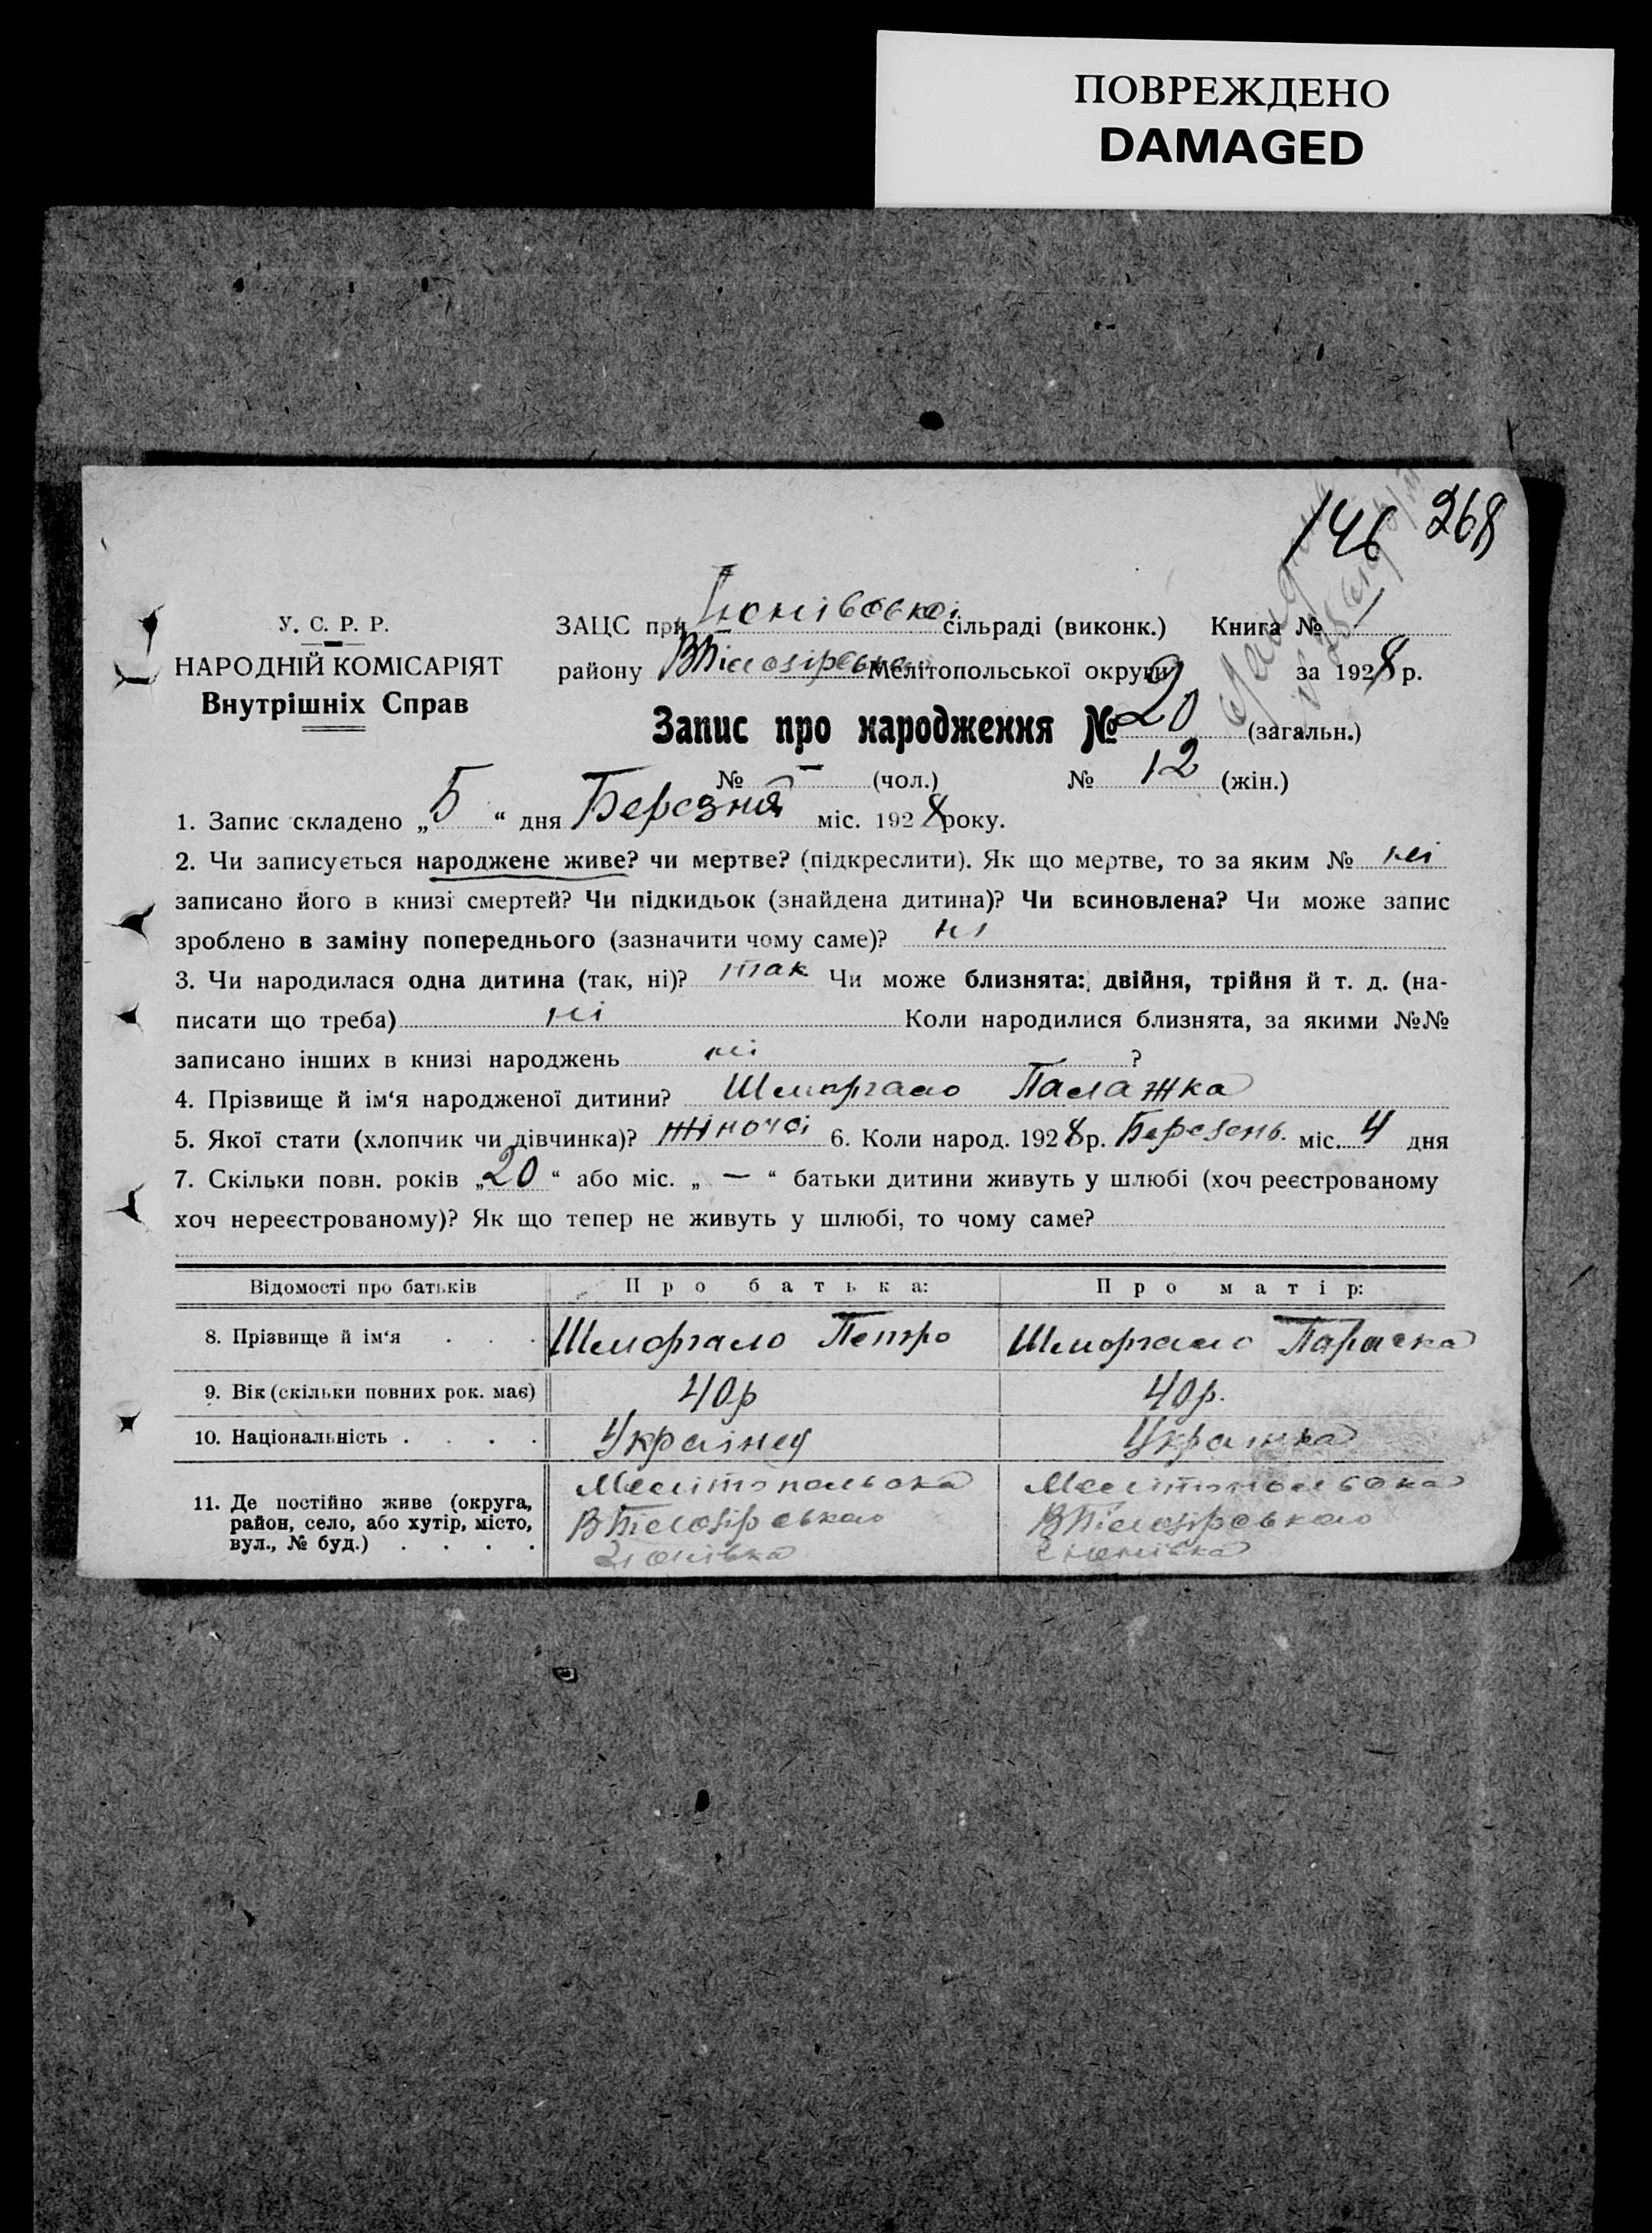 ПОВРЕЖДЕНО
DAMAGED
146 268
У. С. Р. Р.
НАРОДНІЙ КОМІСАРІЯТ
Внутрішніх Справ
ЗАЦС при сільраді (виконк.) Книга №
району ВБілозірсько Мелітопольської округи за 1928 р.
Запис про народження № 20 (загальн.)
№ — (чол.) № 12 (жін.)
1. Запис складено „ 5 “ дня Березня міс. 1928 року.
2. Чи записується народжене живе? чи мертве? (підкреслити). Як що мертве, то за яким № ні
записано його в книзі смертей? Чи підкидьок (знайдена дитина)? Чи всиновлена? Чи може запис
зроблено в заміну попереднього (зазначити чому саме)? ні
3. Чи народилася одна дитина (так, ні)? так Чи може близнята: двійня, трійня й т. д. (на-
писати що треба) ні Коли народилися близнята, за якими №№
записано інших в книзі народжень ні ?
4. Прізвище й ім‘я народженої дитини? Шморгало Палажка
5. Якої стати (хлопчик чи дівчинка)? жіночої 6. Коли народ. 1928 р. Березень міс. 4 дня
7. Скільки повн. років „ 20 “ або міс. „ — “ батьки дитини живуть у шлюбі (хоч реєстрованому
хоч нереєстрованому)? Як що тепер не живуть у шлюбі, то чому саме?
Відомості про батьків Про батька: Про матір:
8. Прізвище й ім‘я . . . Шморгало Петро Шморгало Параска
9. Вік (скільки повних рок. має) 40р 40р.
10. Національність . . . . Українец Українка
11. Де постійно живе (округа,
район, село, або хутір, місто,
вул., № буд.) . . . .
Мелітопольска Мелітопольска
ВБілозірського ВБілозірського